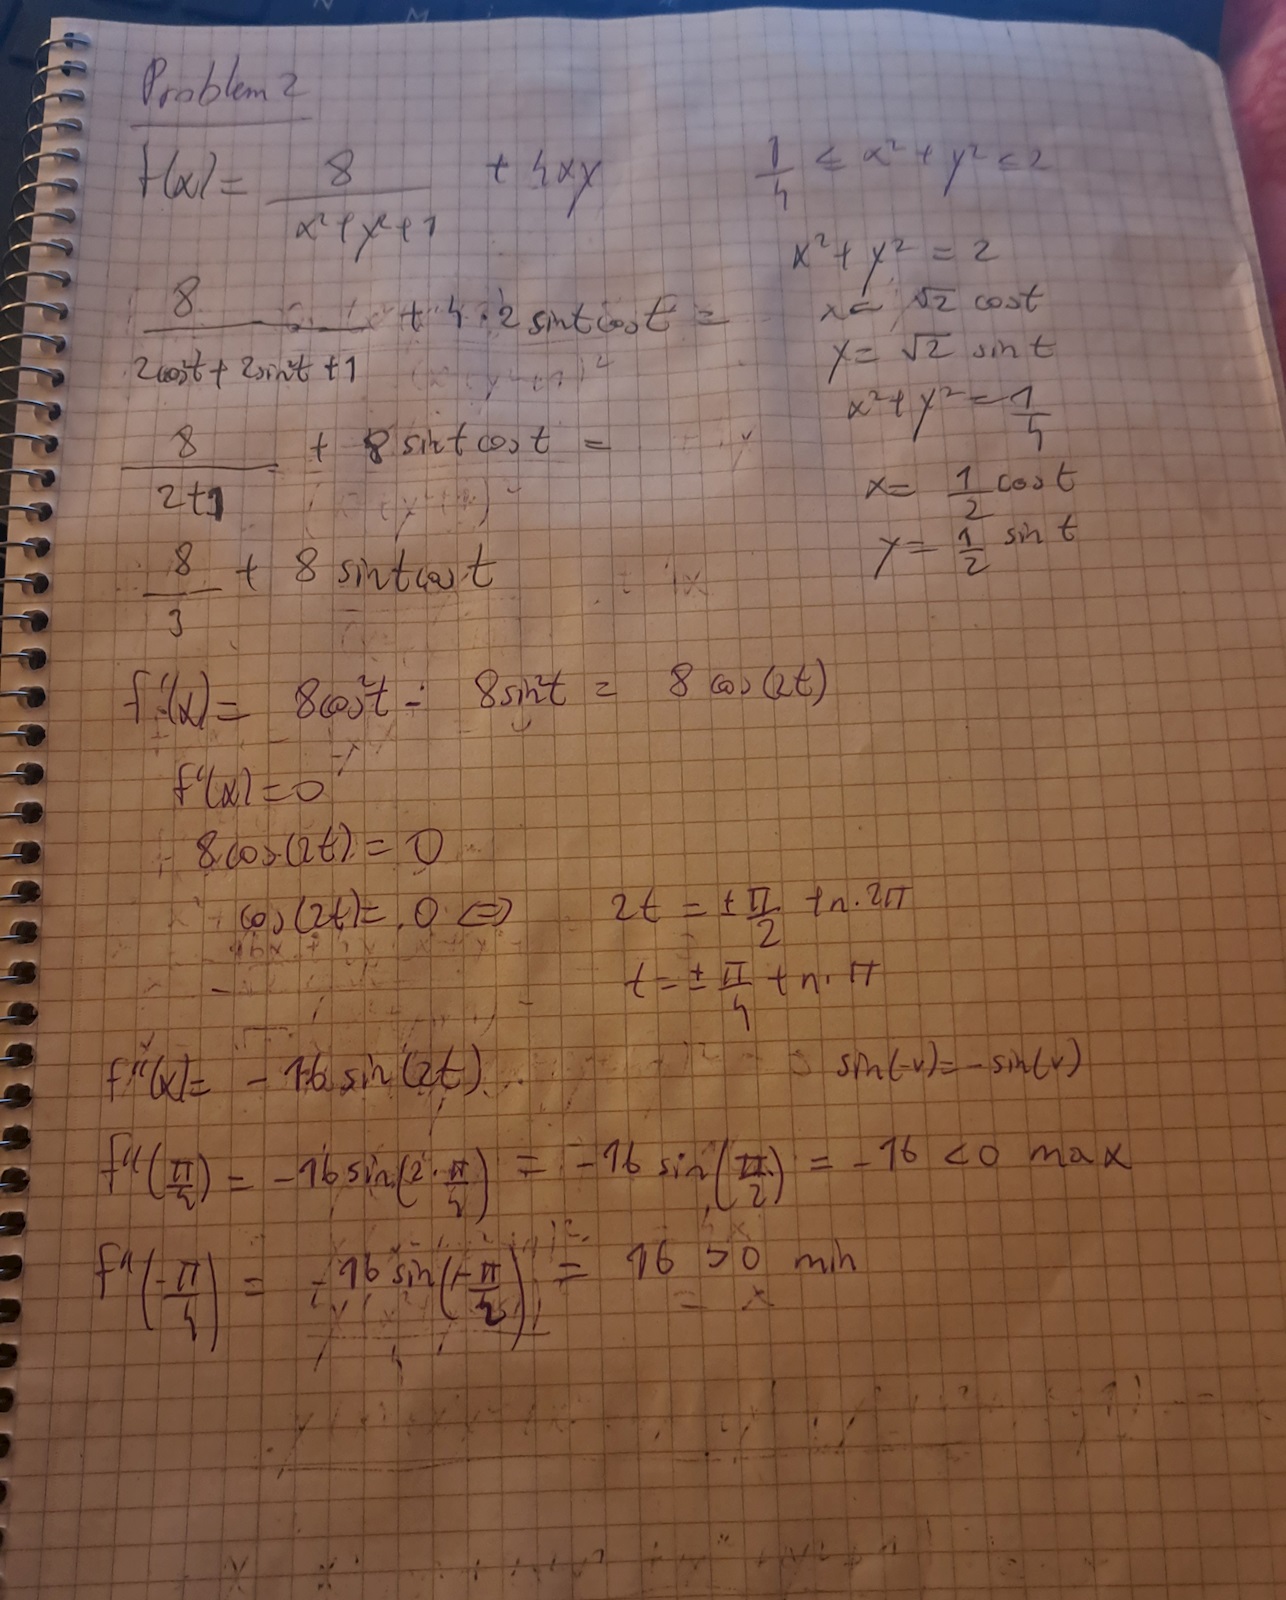 Problem 2
f(x) = 8/(x²+y²+1) + 4xy
1/4 ≤ x²+y² ≤ 2
x²+y² = 2
x = √2 cost
y = √2 sin t
x²+y² = 1/4
x = 1/2 cos t
y = 1/2 sin t
8/(2cos²t + 2sin²t + 1) + 4·2 sint cost =
8/(2+1) + 8 sint cost =
8/3 + 8 sint cost
f'(x) = 8cos²t - 8sin²t = 8 cos(2t)
f'(x) = 0
8 cos(2t) = 0
cos(2t) = 0 <=> 2t = ±π/2 + n·2π
t = ±π/4 + n·π
f''(x) = -16 sin(2t)
sin(-v) = -sin(v)
f''(π/4) = -16 sin(2·π/4) = -16 sin(π/2) = -16 < 0 max
f''(-π/4) = -16 sin(-π/2) = 16 > 0 min